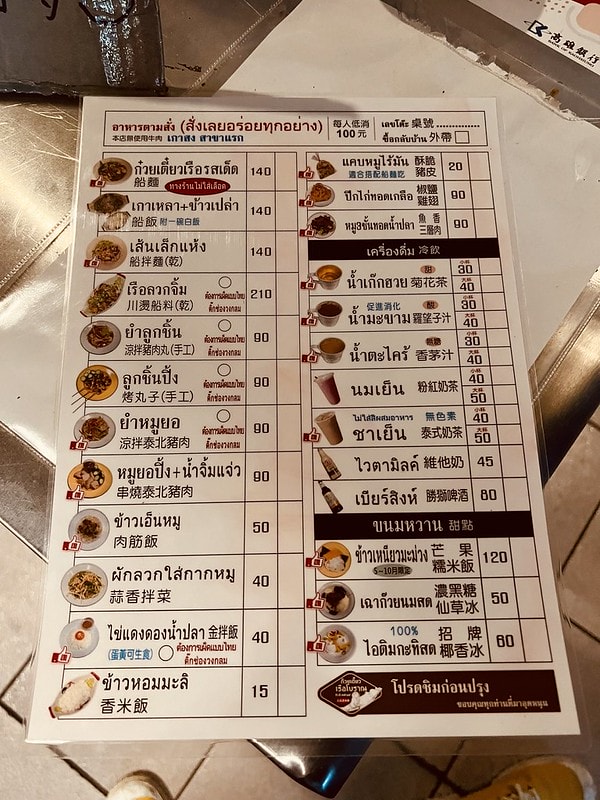 高雄銀行
BANK OF KAOHSIUNG
อาหารตามสั่ง (สั่งเลยอร่อยทุกอย่าง)
本店無使用牛肉 เกาสง สาขาแรก
每人低消
100元
เลขโต๊ะ 桌號
ซื้อกลับบ้าน 外帶
ก๋วยเตี๋ยวเรือรสเด็ด 140
船麵 ทางร้านไม่ใส่เลือด
เกาเหลา+ข้าวเปล่า 140
船飯 附一碗白飯
เส้นเล็กแห้ง 140
船拌麵(乾)
เรือลวกจิ้ม 210
川燙船料(乾) ต้องการเผ็ดแบบไทย
ติ๊กช่องวงกลม
ยำลูกชิ้น 90
涼拌豬肉丸(手工) ต้องการเผ็ดแบบไทย
ติ๊กช่องวงกลม
ลูกชิ้นปิ้ง 90
烤丸子(手工) ต้องการเผ็ดแบบไทย
ติ๊กช่องวงกลม
ยำหมูยอ 90
涼拌泰北豬肉 ต้องการเผ็ดแบบไทย
ติ๊กช่องวงกลม
หมูยอปิ้ง+น้ำจิ้มแจ่ว 90
串燒泰北豬肉
ข้าวเอ็นหมู 50
肉筋飯
ผักลวกใส่กากหมู 40
蒜香拌菜
ไข่แดงดองน้ำปลา 金拌飯 40
(蛋黃可生食) ต้องการเผ็ดแบบไทย
ติ๊กช่องวงกลม
ข้าวหอมมะลิ 15
香米飯
แคบหมูไร้มัน 酥脆豬皮 20
適合搭配船麵吃
ปีกไก่ทอดเกลือ 椒鹽雞翅 90
หมู3ชั้นทอดน้ำปลา 魚香三層肉 90
เครื่องดื่ม 冷飲
น้ำเก๊กฮวย 菊花茶 甜 小杯 30 大杯 40
促進消化
น้ำมะขาม 羅望子汁 酸 小杯 30 大杯 40
น้ำตะไคร้ 香茅汁 小杯 30 大杯 40
นมเย็น 粉紅奶茶 小杯 40 大杯 50
ไม่ใส่สีผสมอาหาร 無色素
ชาเย็น 泰式奶茶 小杯 40 大杯 50
ไวตามิลค์ 維他奶 45
เบียร์สิงห์ 勝獅啤酒 80
ขนมหวาน 甜點
ข้าวเหนียวมะม่วง 芒果糯米飯 120
5~10月限定
เฉาก๊วยนมสด 濃黑糖仙草冰 50
100%
ไอติมกะทิสด 招牌椰香冰 60
ก๋วยเตี๋ยว
เรือโบราณ
โปรดชิมก่อนปรุง
ขอบคุณทุกท่านที่มาอุดหนุน